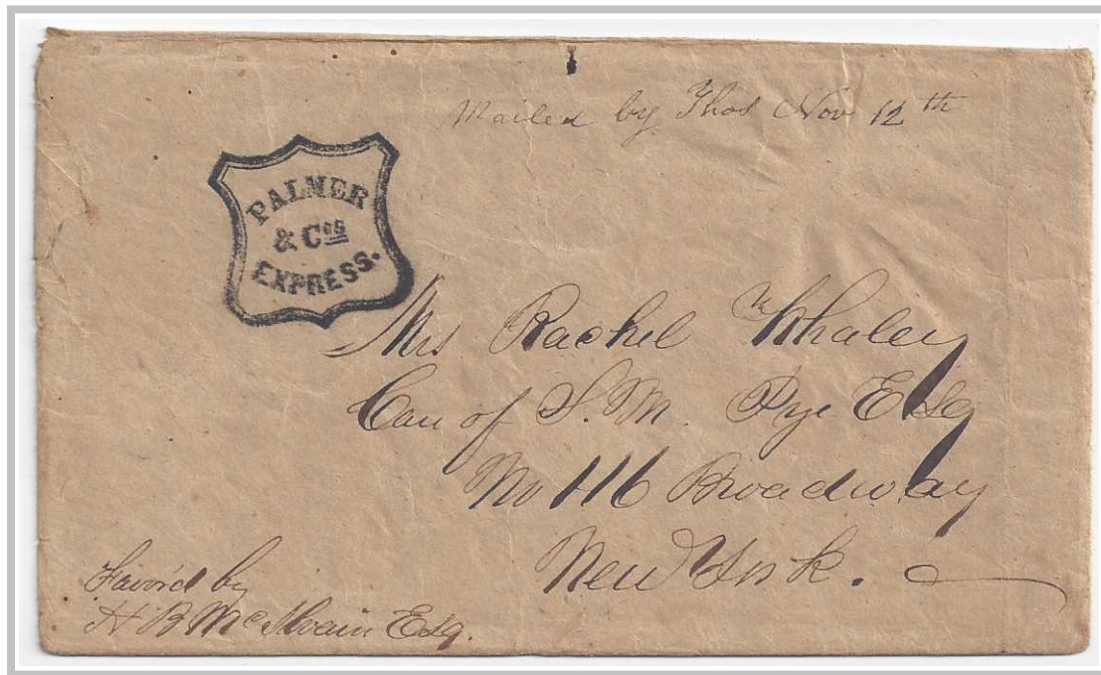 Mailed by Thos Nov 12th
PALMER
& Cos
EXPRESS.
Mrs Rachel Whaley
Care of S. M. Pye Esq
No 116 Broadway
New York.
Favor'd by
H B McIlvain Esq.